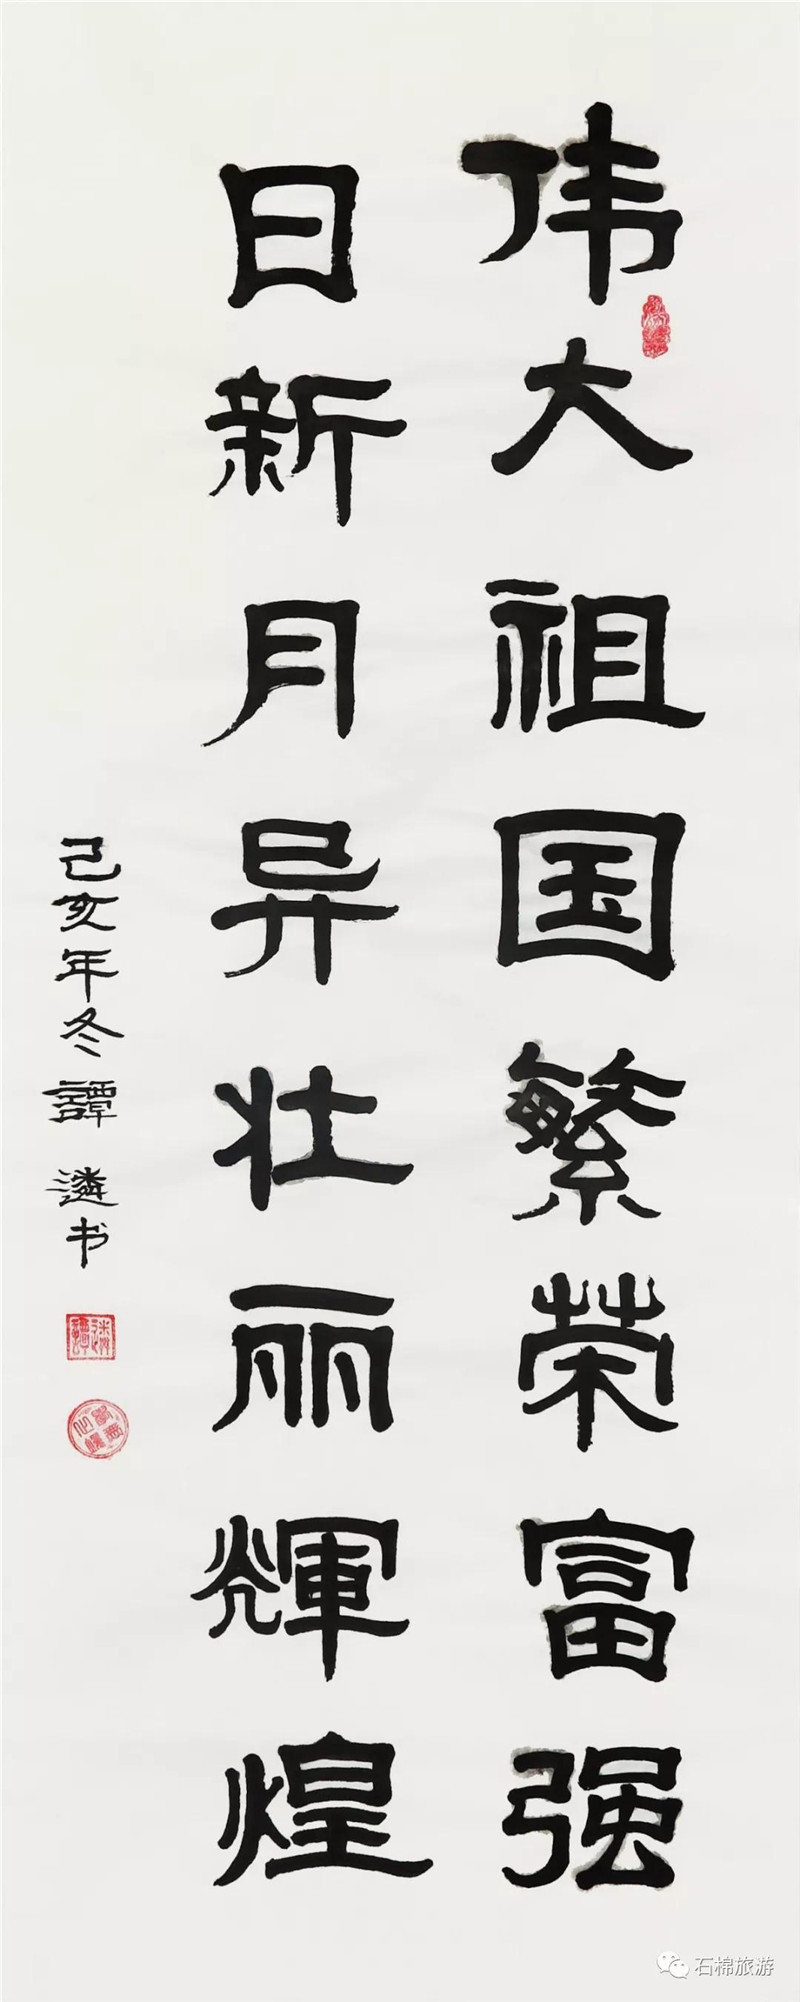 伟大祖国繁荣富强
日新月异壮丽輝煌
己亥年冬譚遴书
石棉旅游